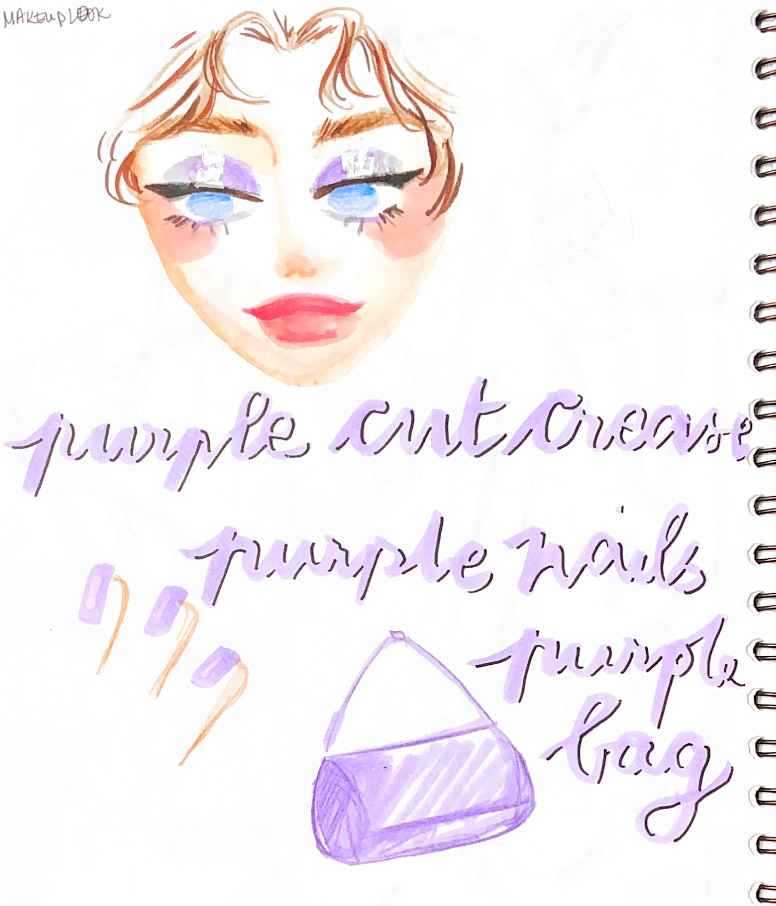 MAKEUP LOOK
purple cut crease
purple nails
purple
bag